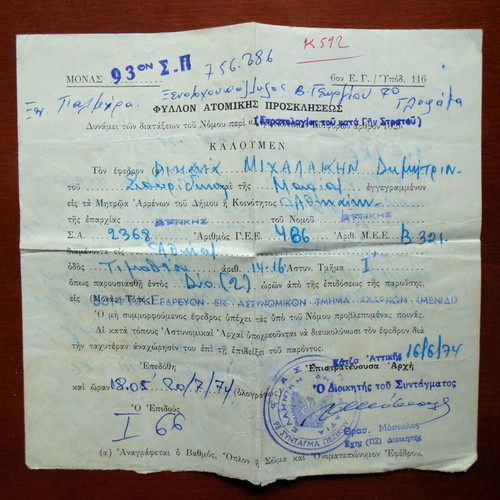 Κ512
ΜΟΝΑΣ 93ΟΝ Σ.Π 756.286 6ον Ε.Γ. / Ὑπόδ. 116
Ξεν. Παλμύρα. Β. Γεωργίου 70 Γλυφάδα
ΦΥΛΛΟΝ ΑΤΟΜΙΚΗΣ ΠΡΟΣΚΛΗΣΕΩΣ
Δυνάμει τῶν διατάξεων τοῦ Νόμου περὶ «Στρατολογίας τοῦ κατὰ Γῆν Στρατοῦ»
ΚΑΛΟΥΜΕΝ
Τὸν ἔφεδρον ΜΙΧΑΛΑΚΗΝ Δημήτριον
τοῦ Σπυρίδωνος καὶ τῆς Μαρίας ἐγγεγραμμένον
εἰς τὰ Μητρῷα Ἀρρένων τοῦ Δήμου ἢ Κοινότητος Ἀθηναίων
τῆς ἐπαρχίας ΑΤΤΙΚΗΣ τοῦ Νομοῦ ΑΤΤΙΚΗΣ
Σ.Α. 9368 Ἀριθμὸς Γ.Ε.Ε. 486 Ἀριθ. Μ.Ε.Ε. Β 321
διαμένοντα εἰς Ἀθήνας
ὁδὸς Τιμοθέου ἀριθ. 14-16 Ἀστυν. Τμῆμα Ι
ὅπως παρουσιασθῇ ἐντὸς Δύο (2) ὡρῶν ἀπὸ τῆς ἐπιδόσεως τῆς παρούσης,
εἰς (Μονὰς Τόπος) ΕΔΡΕΥΟΝ ΕΙΣ ΑΣΤΥΝΟΜΙΚΟΝ ΤΜΗΜΑ ΑΧΑΡΝΩΝ (ΜΕΝΙΔΙ)
Ὁ μὴ συμμορφούμενος ἔφεδρος ὑπέχει τὰς ὑπὸ τοῦ Νόμου προβλεπομένας ποινάς.
Αἱ κατὰ τόπους Ἀστυνομικαὶ Ἀρχαὶ ὑποχρεοῦνται νὰ διευκολύνωσι τὸν ἔφεδρον διὰ
τὴν ταχυτέραν ἀναχώρησίν του ἐπὶ τῇ ἐπιδείξει τοῦ παρόντος.
Ἐπεδόθη Κάντζα Ἀττικῆς 16/6/74
Ἐπιστρατεύουσα Ἀρχὴ
καὶ ὥραν 18.05. 20/7/74 (ὁλογράφως)
Ὁ Διοικητὴς τοῦ Συντάγματος
Ὁ Ἐπιδοὺς
Ι 66
ΕΛΛΗΝΙΚΗ
93 ΣΥΝΤΑΓΜΑ ΠΕΖΙΚΟΥ
Θρασ. Μόσιαλος
Σχης (ΠΖ) Διοικητής
(α) Ἀναγράφεται ὁ Βαθμός, Ὅπλον ἢ Σῶμα καὶ Ὀνοματεπώνυμον Ἐφέδρου.